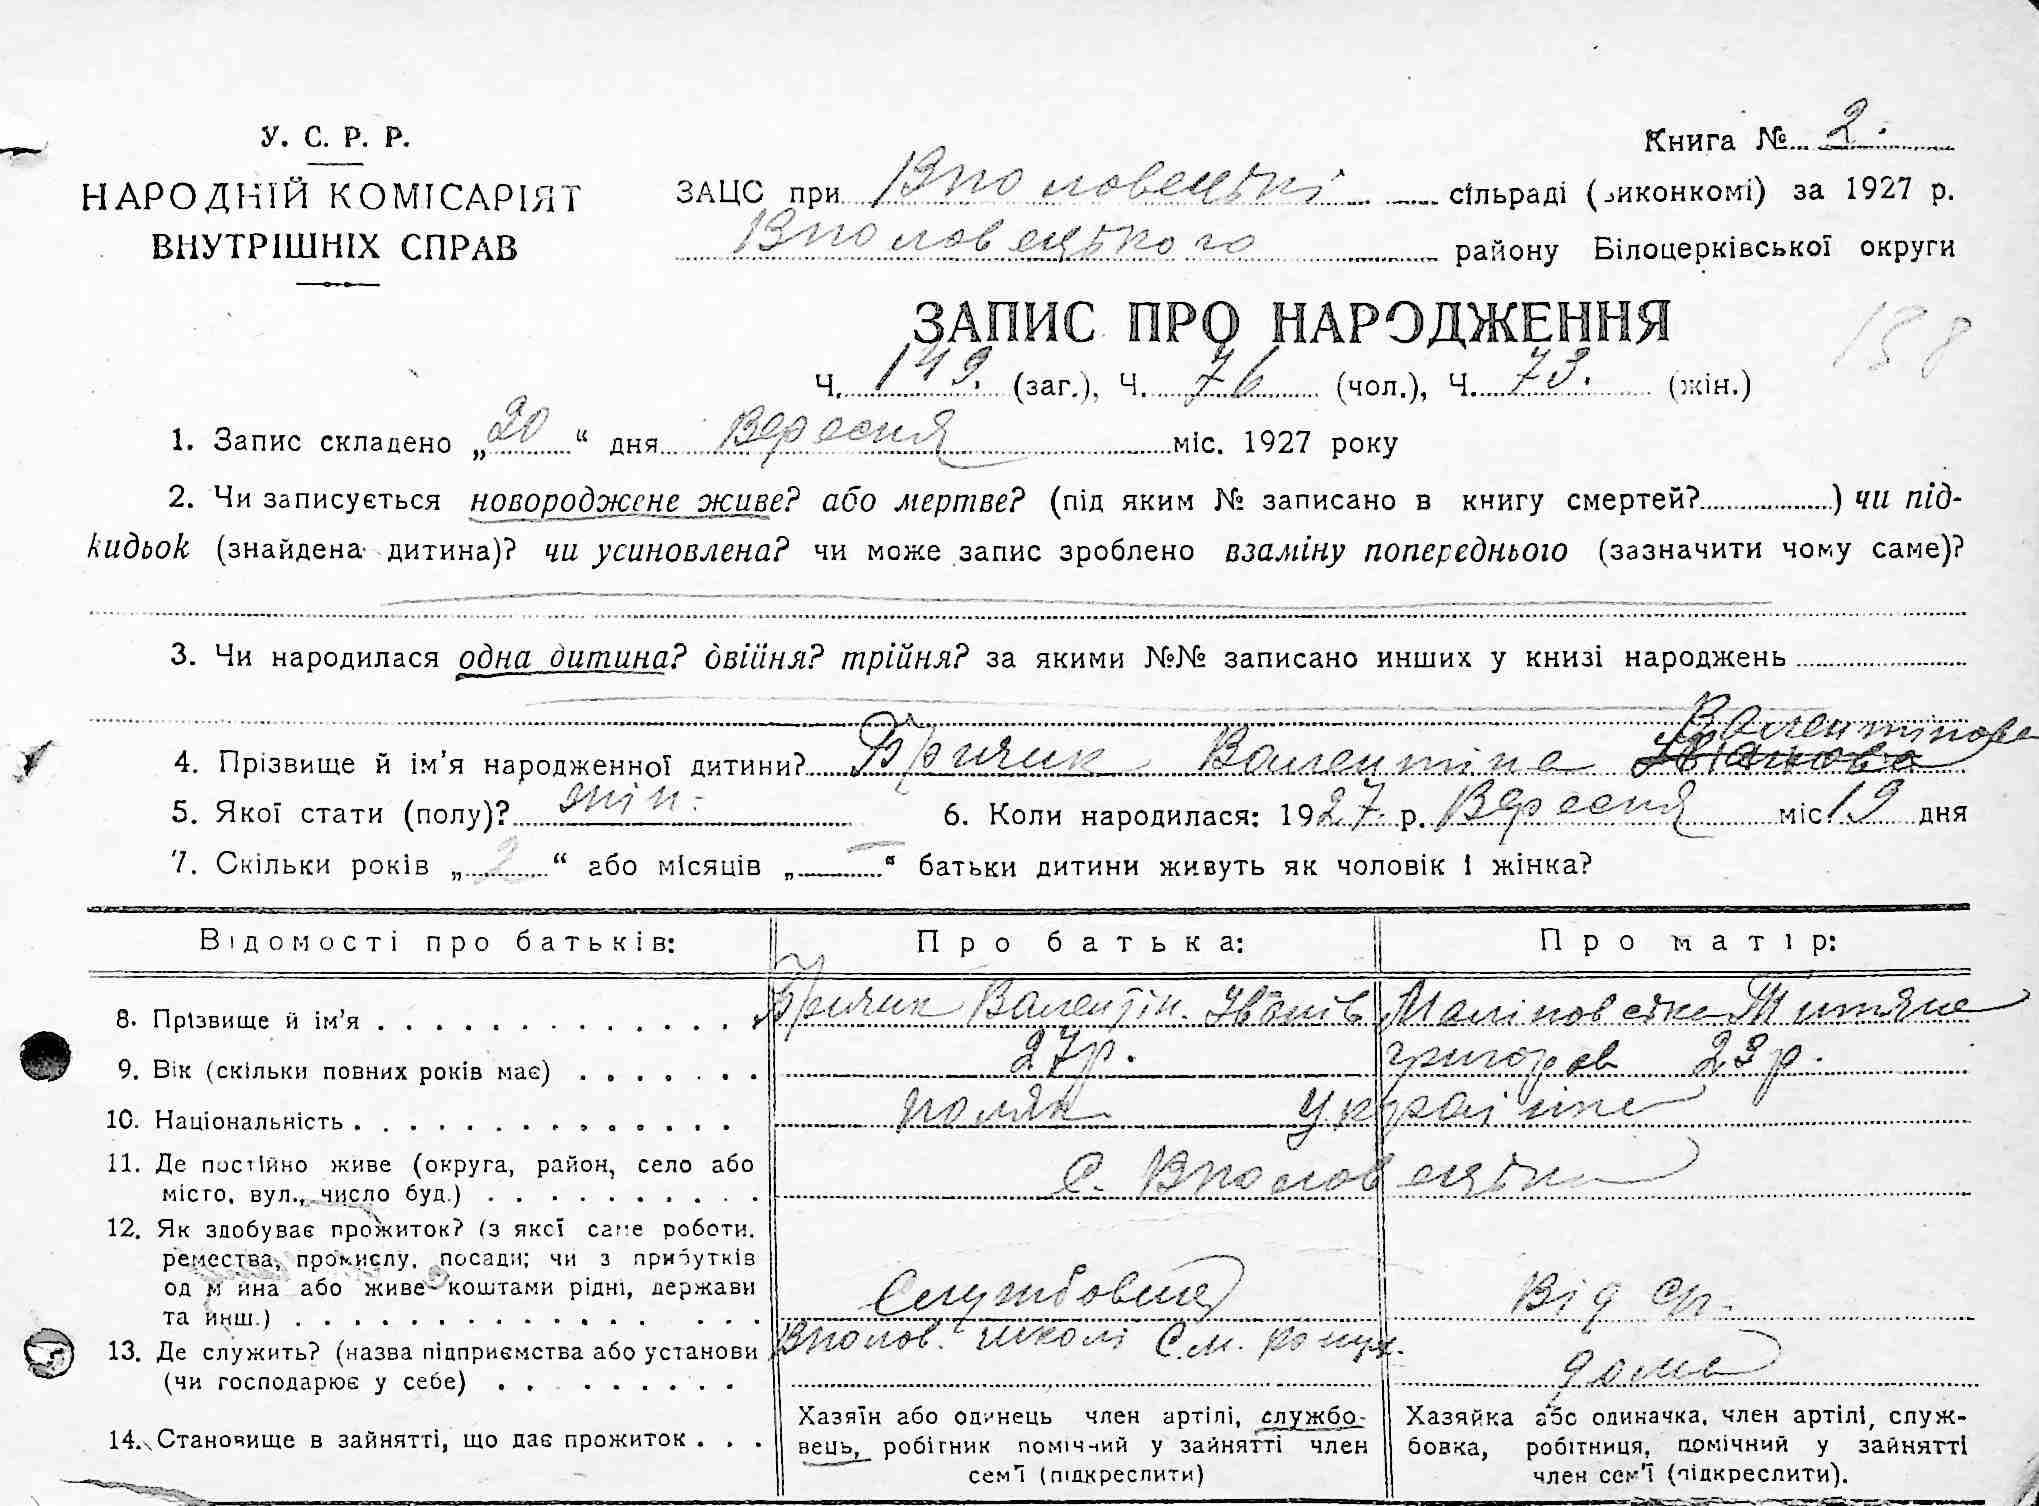 У. С. Р. Р.
НАРОДНІЙ КОМІСАРІЯТ
ВНУТРІШНІХ СПРАВ
Книга № 2.
ЗАЦС при Вполовецькій сільраді (виконкомі) за 1927 р.
Вполовецького району Білоцерківської округи
ЗАПИС ПРО НАРОДЖЕННЯ
138
Ч. 149. (заг.), Ч. 76 (чол.), Ч. 73. (жін.)
1. Запис складено „20“ дня Вересня міс. 1927 року
2. Чи записується новороджене живе? або мертве? (під яким № записано в книгу смертей?) чи під-
кидьок (знайдена дитина)? чи усиновлена? чи може запис зроблено взаміну попереднього (зазначити чому саме)?
3. Чи народилася одна дитина? двійня? трійня? за якими №№ записано инших у книзі народжень
Валентінова
4. Прізвище й ім’я народженної дитини? Бричик Валентіна Іванова
5. Якої стати (полу)? жін. 6. Коли народилася: 1927 р. Вересня міс 19 дня
7. Скільки років „2“ або місяців „—“ батьки дитини живуть як чоловік і жінка?
Відомості про батьків: Про батька: Про матір:
8. Прізвище й ім’я Бричик Валентін. Іванів Маліновська Титяна
9. Вік (скільки повних років має) 27 р. григоров 23 р.
10. Національність поляк Українка
11. Де постійно живе (округа, район, село або
місто, вул., число буд.) с. Вполовецька
12. Як здобуває прожиток? (з якої саме роботи,
ремества, промислу, посади; чи з прибутків
од майна або живе коштами рідні, держави
та инш.) Службовець Від ср.
13. Де служить? (назва підприємства або установи Вполов. школі
(чи господарює у себе) дома
14. Становище в зайнятті, що дає прожиток
Хазяїн або одинець член артілі, службо-
вець, робітник помічний у зайнятті член
сем’ї (підкреслити)
Хазяйка або одиначка, член артілі, служ-
бовка, робітниця, помічний у зайнятті
член сем’ї (підкреслити).